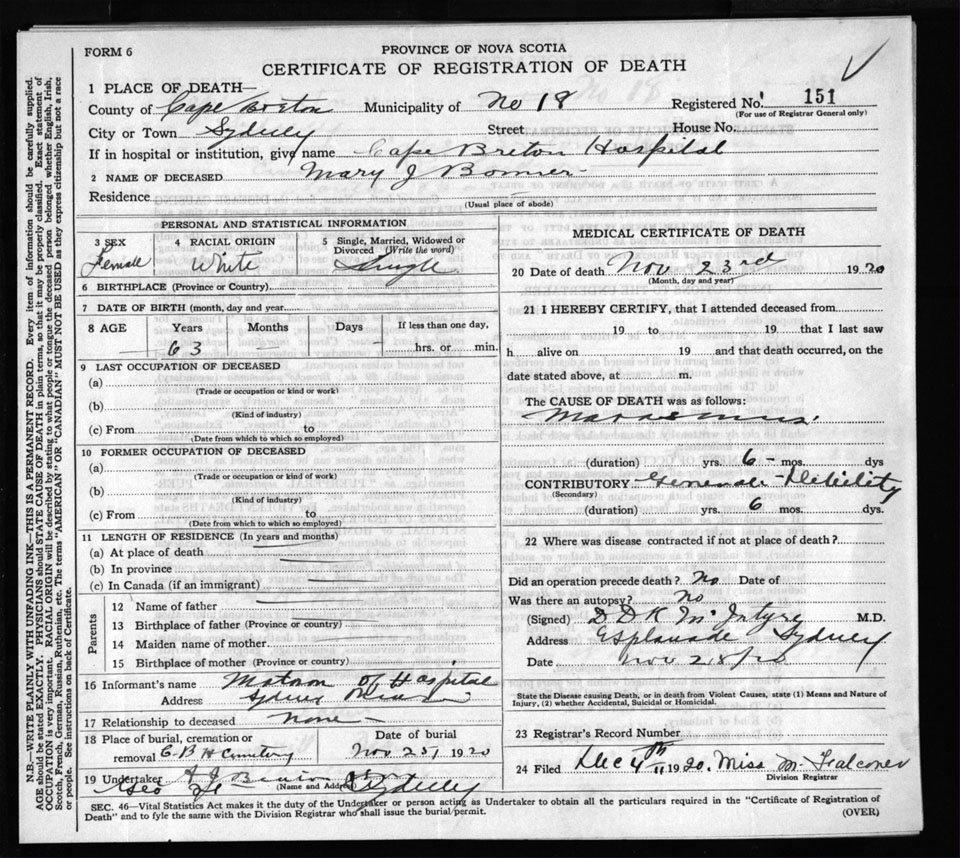 FORM 6
PROVINCE OF NOVA SCOTIA
CERTIFICATE OF REGISTRATION OF DEATH
1 PLACE OF DEATH—
County of Cape Breton Municipality of No 18 Registered No. 151
(For use of Registrar General only)
City or Town Sydney Street House No.
If in hospital or institution, give name Cape Breton Hospital
2 NAME OF DECEASED Mary J
Residence —
(Usual place of abode)
PERSONAL AND STATISTICAL INFORMATION
3 SEX Female
4 RACIAL ORIGIN White
5 Single, Married, Widowed or Divorced (Write the word) Single
6 BIRTHPLACE (Province or Country)
7 DATE OF BIRTH (month, day and year
8 AGE Years Months Days If less than one day,
63 — — hrs. or min.
9 LAST OCCUPATION OF DECEASED
(a)
(Trade or occupation or kind or work)
(b)
(Kind of industry)
(c) From to
(Date from which to which so employed)
10 FORMER OCCUPATION OF DECEASED
(a)
(Trade or occupation or kind of work)
(b)
(Kind of industry)
(c) From to
(Date from which to which so employed)
11 LENGTH OF RESIDENCE (In years and months)
(a) At place of death
(b) In province
(c) In Canada (if an immigrant)
Parents
12 Name of father
13 Birthplace of father (Province or country)
14 Maiden name of mother
15 Birthplace of mother (Province or country)
16 Informant's name Matron of Hospital
Address Sydney
17 Relationship to deceased None —
18 Place of burial, cremation or removal C. B. H Cemetery
Date of burial Nov 23, 1920
19 Undertaker
(Name and Address) Sydney
MEDICAL CERTIFICATE OF DEATH
20 Date of death Nov 23rd 1920
(Month, day and year)
21 I HEREBY CERTIFY, that I attended deceased from
19 to 19 that I last saw
h alive on 19 and that death occurred, on the
date stated above, at m.
The CAUSE OF DEATH was as follows:
Marasmus
(duration) yrs. 6 — mos. dys
CONTRIBUTORY General Debility
(Secondary)
(duration) yrs. 6 mos. dys.
22 Where was disease contracted if not at place of death?
Did an operation precede death? No Date of
Was there an autopsy? No
(Signed) D D K McIntyre M.D.
Address Esplanade Sydney
Date Nov 28/20
State the Disease causing Death, or in death from Violent Causes, state (1) Means and Nature of
Injury, (2) whether Accidental, Suicidal or Homicidal.
23 Registrar's Record Number
24 Filed Dec 4th 1920. Miss M. Falconer
Division Registrar
SEC. 46—Vital Statistics Act makes it the duty of the Undertaker or person acting as Undertaker to obtain all the particulars required in the "Certificate of Registration of
Death" and to fyle the same with the Division Registrar who shall issue the burial permit. (OVER)
N.B.—WRITE PLAINLY WITH UNFADING INK—THIS IS A PERMANENT RECORD. Every item of information should be carefully supplied.
AGE should be stated EXACTLY. PHYSICIANS should STATE CAUSE OF DEATH in plain terms, so that it may be properly classified. Exact statement of
OCCUPATION is very important. RACIAL ORIGIN will be described by stating to what people or tongue the deceased person belonged whether English, Irish,
Scotch, French, German, Russian, Ruthenian, etc. The terms "AMERICAN" OR "CANADIAN" MUST NOT BE USED as they express citizenship but not a race
or people. See instructions on back of Certificate.